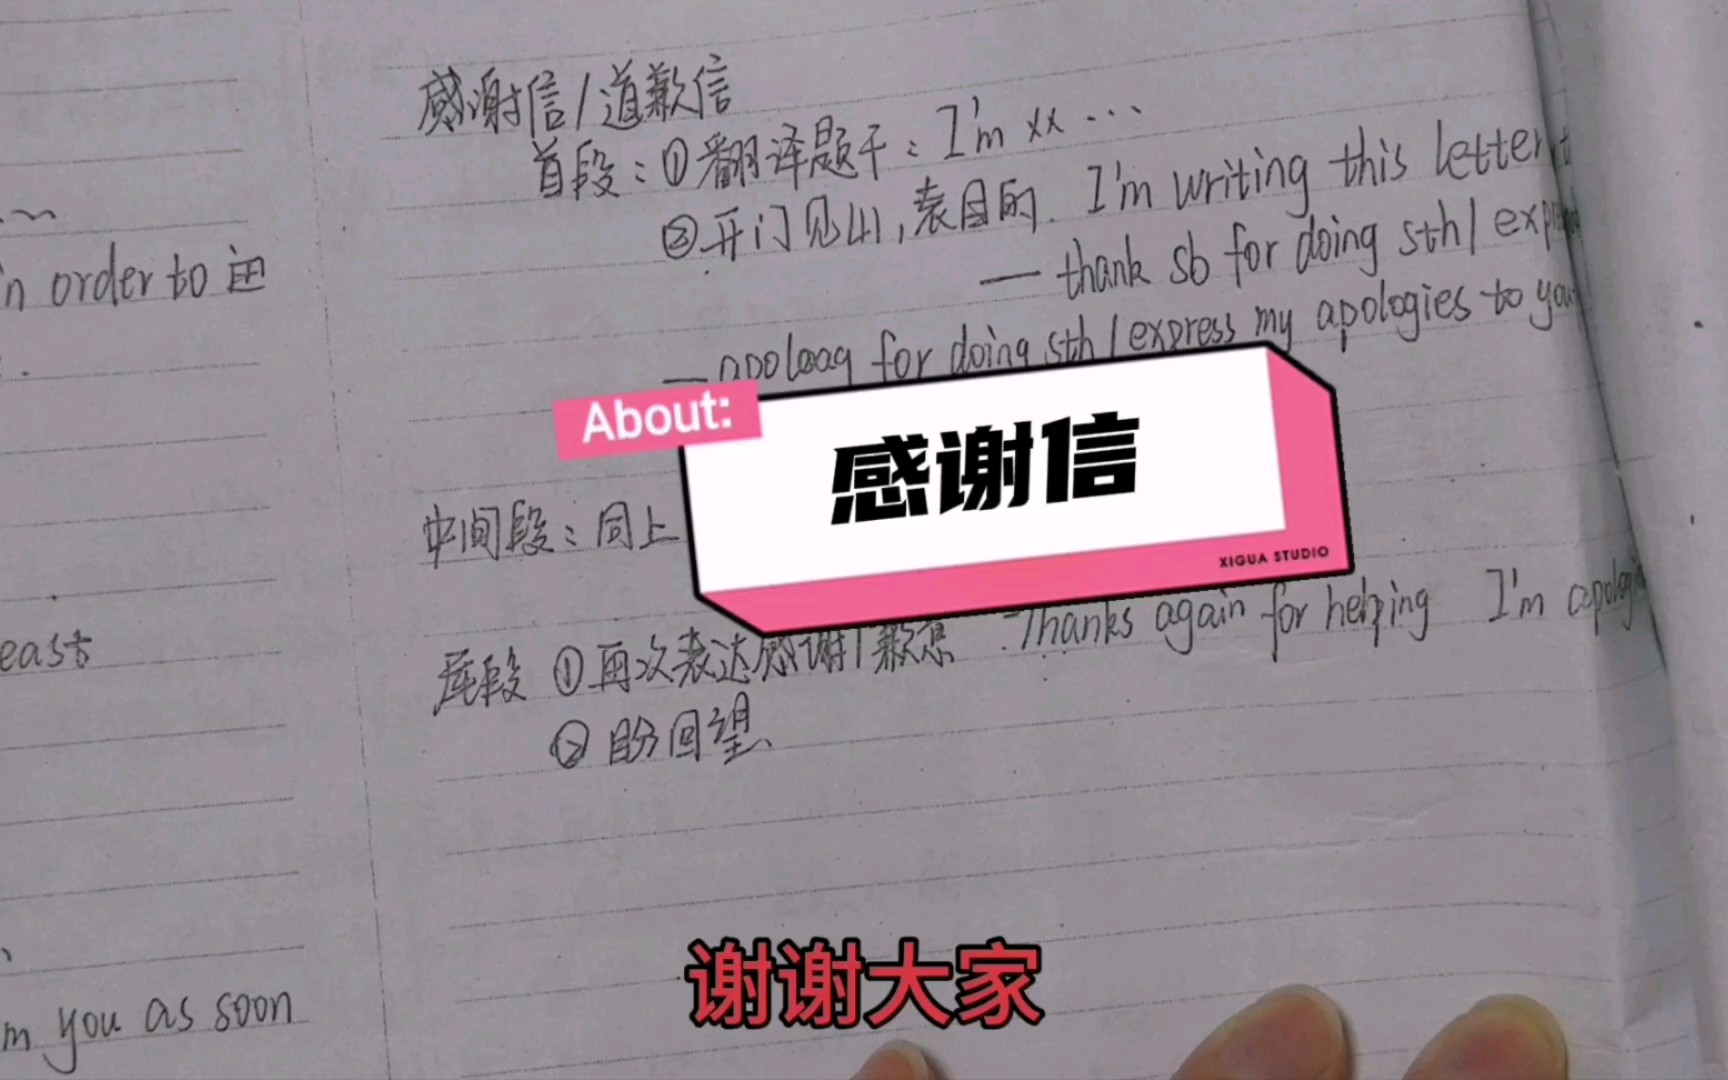 感谢信/道歉信
首段：①翻译题干：I'm xx ...
②开门见山,表目的. I'm writing this letter
— thank sb for doing sth/
— for doing sth/express my apologies to you
中间段：同上
尾段 ①再次表达感谢/歉意 Thanks again for helping I'm
②盼回望
n order to
east
m you as soon
About:
感谢信
XIGUA STUDIO
谢谢大家